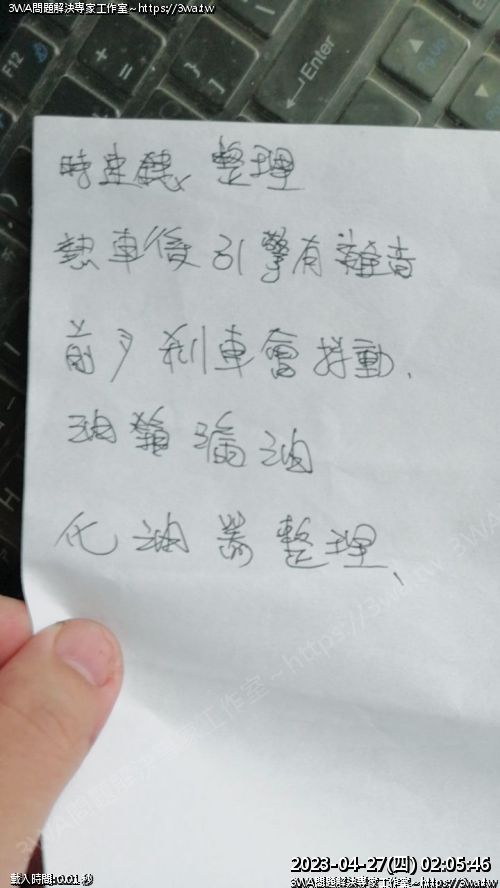 3WA問題解決專家工作室~https://3wa.tw
F12
+
=
}
]
Enter
PgUp
PgDn
時速錶、整理
熱車後引擎有雜音
前夕剎車會抖動、
油箱漏油
化油器整理、
3WA問題解決專家工作室~https://3wa.tw
載入時間:0.01秒
2023-04-27(四) 02:05:46
3WA問題解決專家工作室~https://3wa.tw